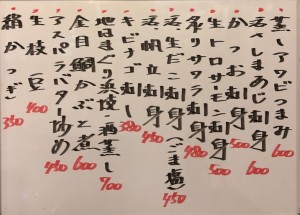 蒸しアワビつまみ 600
活〆しまあじ刺身 600
かつお刺身 500
生トロサーモン刺身 500
炙りサワラ刺身 480
活生だこ刺身(ごま塩) 450
活帆立刺身 450
キビナゴ刺し 380
地はまぐり浜焼・酒蒸し 700
金目鯛かぶと煮 600
アスパラバター炒め 450
生枝豆 400
絹かつぎ 350